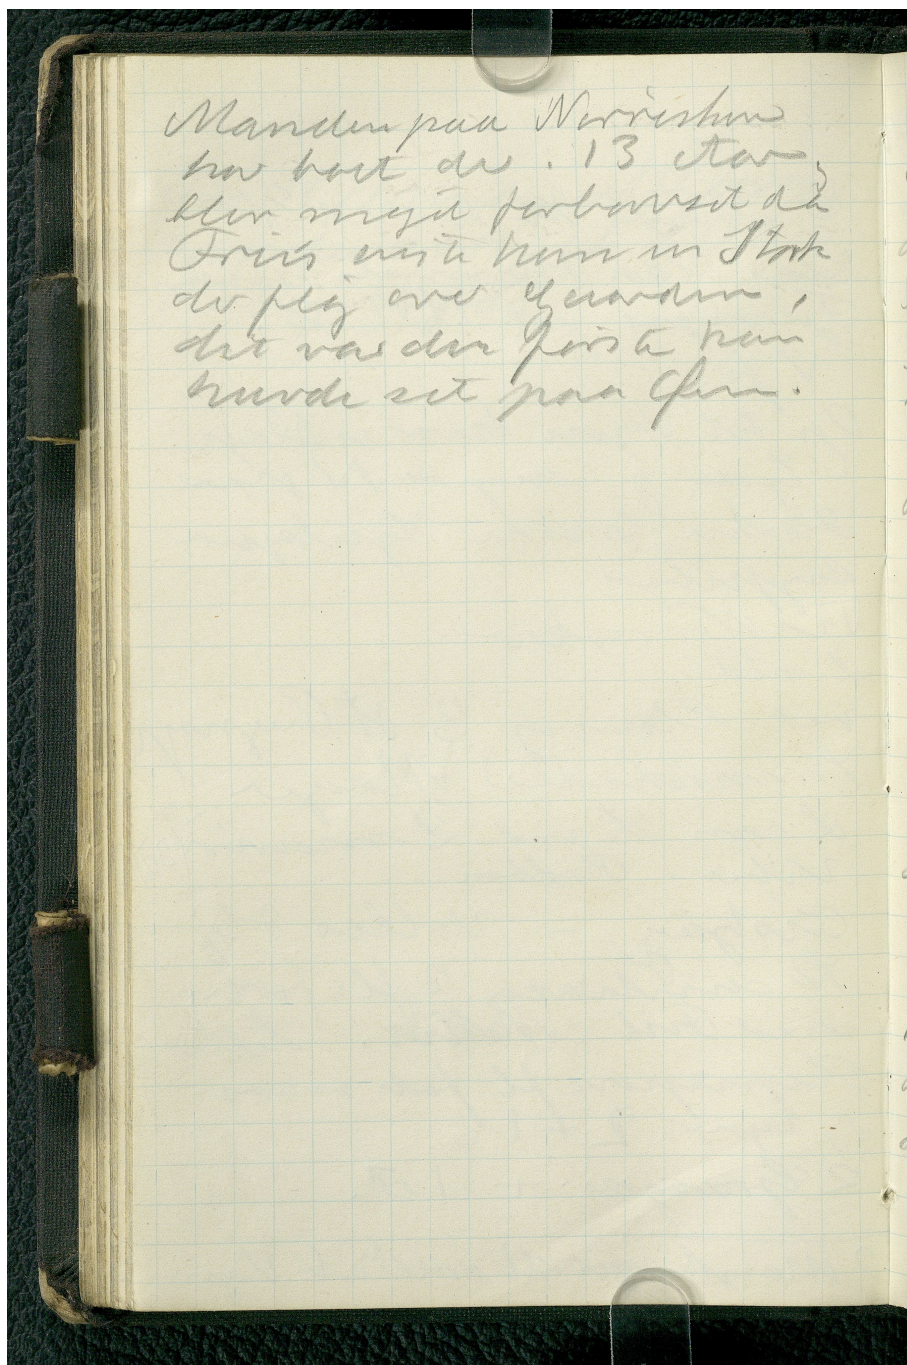 Manden paa Nørreshov
har boet der . 13 Aar,
blev meget forbavset da
Friis viste ham en Stork
der fløj over Gaarden,
det var den første han
havde set paa Øen.